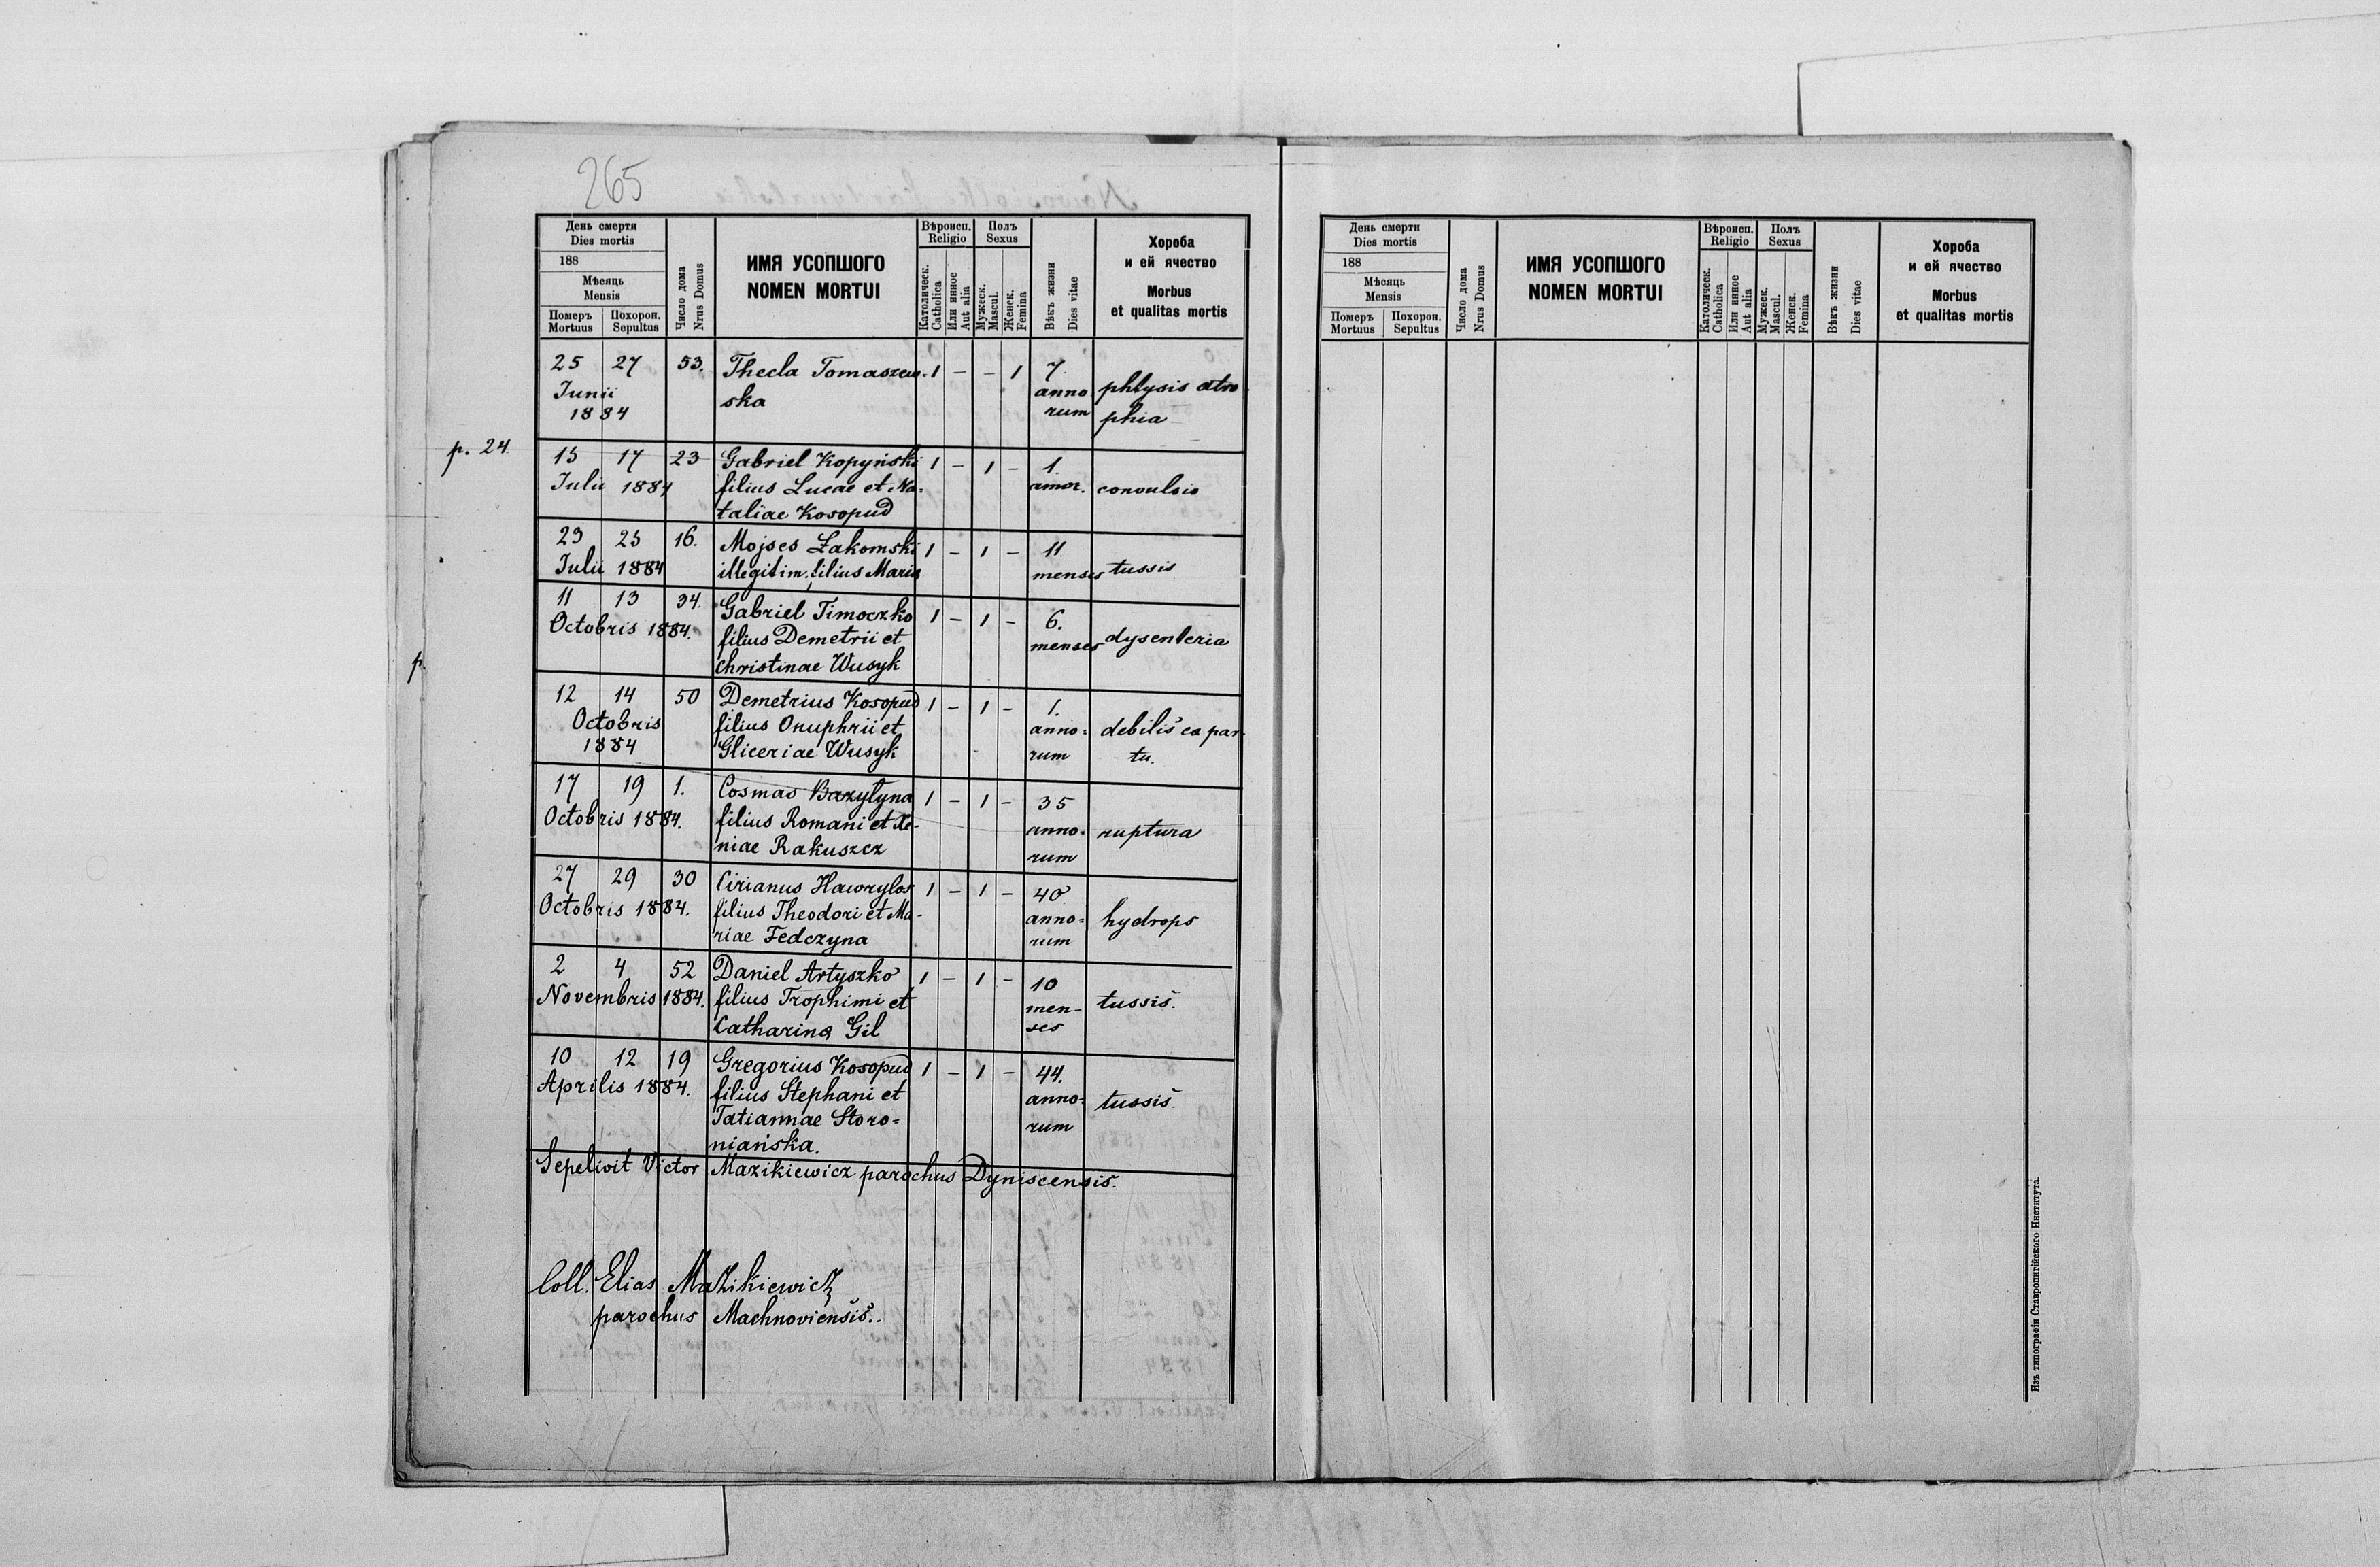 265
День смерти
Dies mortis
188
Мѣсяць
Mensis
Померъ
Mortuus
Похорон.
Sepultus
Число дома
Nrus Domus
ИМЯ УСОПШОГО
NOMEN MORTUI
Вѣроисп.
Religio
Католическ.
Catholica
Или инное
Aut alia
Полъ
Sexus
Мужеск.
Mascul.
Женск.
Femina
Вѣкъ жизни
Dies vitae
Хороба
и ей ячество
Morbus
et qualitas mortis
25 27 53. Thecla Tomaszew- 1 – – 1 7.
Junii ska anno phtysis atro-
1884 rum phia
p. 24.
15 17 23 Gabriel Kopyński 1 – 1 – 1.
Julii 1884 filius Lucae et Na- convulsio
taliae Kosopud
23 25 16. Mojses Łakomski 1 – 1 – 11
Julii 1884 illegitim. filius Maria menses tussis
11 13 34. Gabriel Timoczko 1 – 1 – 6.
Octobris 1884. filius Demetrii et menses dysenteria
Christinae Wusyk
p.
12 14 50 Demetrius Kosopud 1 – 1 – 1.
Octobris filius Onuphrii et anno- debilis ex par-
1884 Gliceriae Wusyk rum tu.
17 19 1. Cosmas Bazylyna 1 – 1 – 35
Octobris 1884. filius Romani et Xe- anno- ruptura
niae Rakuszcz rum
27 29 30 Cirianus Hawrylos 1 – 1 – 40
Octobris 1884. filius Theodori et Ma- anno- hydrops
riae Fedczyna rum
2 4 52 Daniel Artyszko 1 – 1 – 10
Novembris 1884. filius Trophimi et men- tussis.
Catharina Gil ses
10 12 19 Gregorius Kosopud 1 – 1 – 44.
Aprilis 1884. filius Stephani et anno- tussis
Tatiannae Storo- rum
niańska.
Sepelivit Victor Mazikiewicz parochus Dyniscensis.
Coll. Elias Mazikiewicz
parochus Machnoviensis.
День смерти
Dies mortis
188
Мѣсяць
Mensis
Померъ
Mortuus
Похорон.
Sepultus
Число дома
Nrus Domus
ИМЯ УСОПШОГО
NOMEN MORTUI
Вѣроисп.
Religio
Католическ.
Catholica
Или инное
Aut alia
Полъ
Sexus
Мужеск.
Mascul.
Женск.
Femina
Вѣкъ жизни
Dies vitae
Хороба
и ей ячество
Morbus
et qualitas mortis
Изъ типографіи Ставропигійского Института.